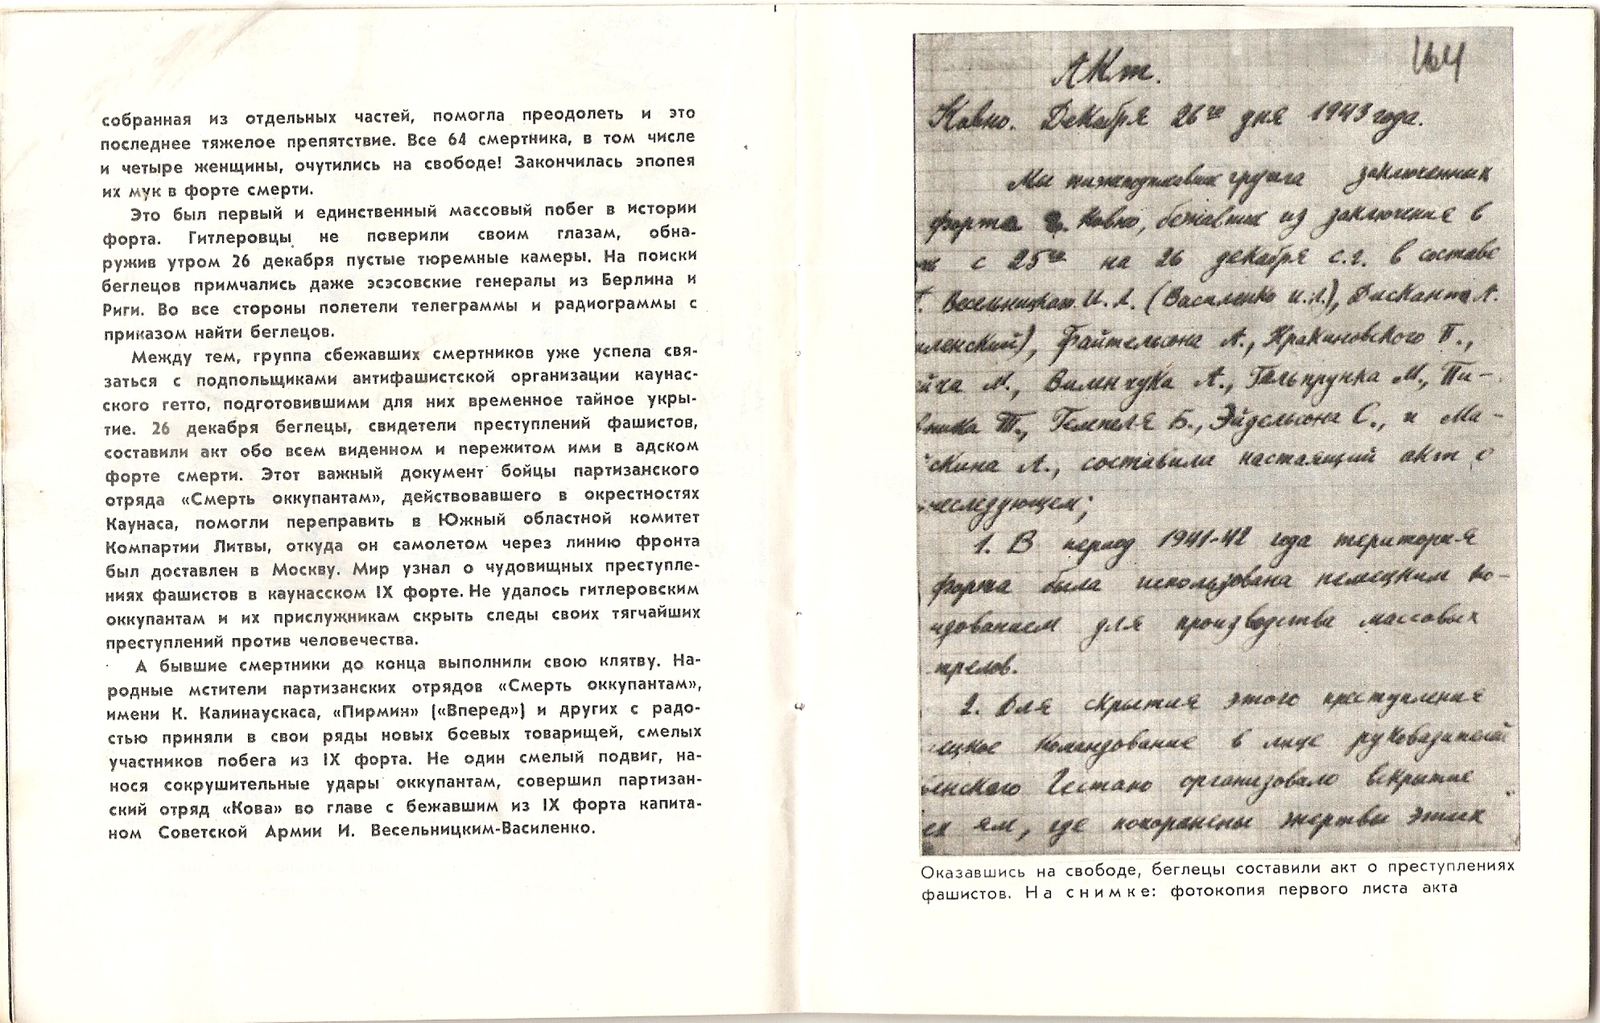 собранная из отдельных частей, помогла преодолеть и это
последнее тяжелое препятствие. Все 64 смертника, в том числе
и четыре женщины, очутились на свободе! Закончилась эпопея
их мук в форте смерти.
Это был первый и единственный массовый побег в истории
форта. Гитлеровцы не поверили своим глазам, обна-
ружив утром 26 декабря пустые тюремные камеры. На поиски
беглецов примчались даже эсэсовские генералы из Берлина и
Риги. Во все стороны полетели телеграммы и радиограммы с
приказом найти беглецов.
Между тем, группа сбежавших смертников уже успела свя-
заться с подпольщиками антифашистской организации каунас-
ского гетто, подготовившими для них временное тайное укры-
тие. 26 декабря беглецы, свидетели преступлений фашистов,
составили акт обо всем виденном и пережитом ими в адском
форте смерти. Этот важный документ бойцы партизанского
отряда «Смерть оккупантам», действовавшего в окрестностях
Каунаса, помогли переправить в Южный областной комитет
Компартии Литвы, откуда он самолетом через линию фронта
был доставлен в Москву. Мир узнал о чудовищных преступле-
ниях фашистов в каунасском IX форте. Не удалось гитлеровским
оккупантам и их прислужникам скрыть следы своих тягчайших
преступлений против человечества.
А бывшие смертники до конца выполнили свою клятву. На-
родные мстители партизанских отрядов «Смерть оккупантам»,
имени К. Калинаускаса, «Пирмин» («Вперед») и других с радо-
стью приняли в свои ряды новых боевых товарищей, смелых
участников побега из IX форта. Не один смелый подвиг, на-
нося сокрушительные удары оккупантам, совершил партизан-
ский отряд «Кова» во главе с бежавшим из IX форта капита-
ном Советской Армии И. Весельницким-Василенко.
164
Акт.
Ковно. Декабря 26го дня 1943 года.
Мы группа заключенных
форта Ковно, бежавших из заключения в
с 25го на 26 декабря с.г. в составе
Весельницкого И.Л. (Василенко И.Л.), Дисканта А.
ленский), Файтельсона А., Кракиновского П.,
М., Виленчука А., Гельпрунка М., Пи-
Т., Гемпеля Б., Эйдельсона С., и Ма-
скина А., составила настаящий акт о
нследующем;
1. В период 1941-42 года територия
форта была использована немецким ко-
ндованием для производства массовых
стрелов.
2. Для скрытия этого преступления
ецкое командование в лице руковадителей
венского Гестапо организовало вскрытие
ех ям, где похоронены жертвы этих
Оказавшись на свободе, беглецы составили акт о преступлениях
фашистов. На снимке: фотокопия первого листа акта